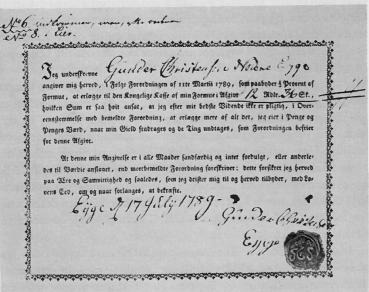 No 6
No 8.
Jeg underskrevne Gunder Christens. Eyge
angiver mig herved, i Følge Forordningen af 11te Martii 1789, som paabyder ½ Procent af
Formue, at erlægge til den Kongelige Kasse af min Formues Afgivt 12 Rdlr.
hvilken Sum er saa høit ansat, at jeg efter mit bedste Vidende ikke er pligtig, i Over-
eensstemmelse med bemeldte Forordning, at erlægge mere af alt det, jeg eier i Penge og
Penges Værd, naar min Gield fradrages og de Ting undtages, som Forordningen befrier
for denne Afgivt.
At denne min Angivelse er i alle Maader sandfærdig og intet fordulgt, eller anderle-
des til Værdie anslaaet, end meerbemeldte Forordning foreskriver: dette forsikrer jeg herved
paa Ære og Samvittighed og saaledes, som jeg drister mig til og herved tilbyder, med Lo-
vens Eed, om og naar forlanges, at bekræfte.
Eyge d 17 July 1789
Gunder Christens
Eyge